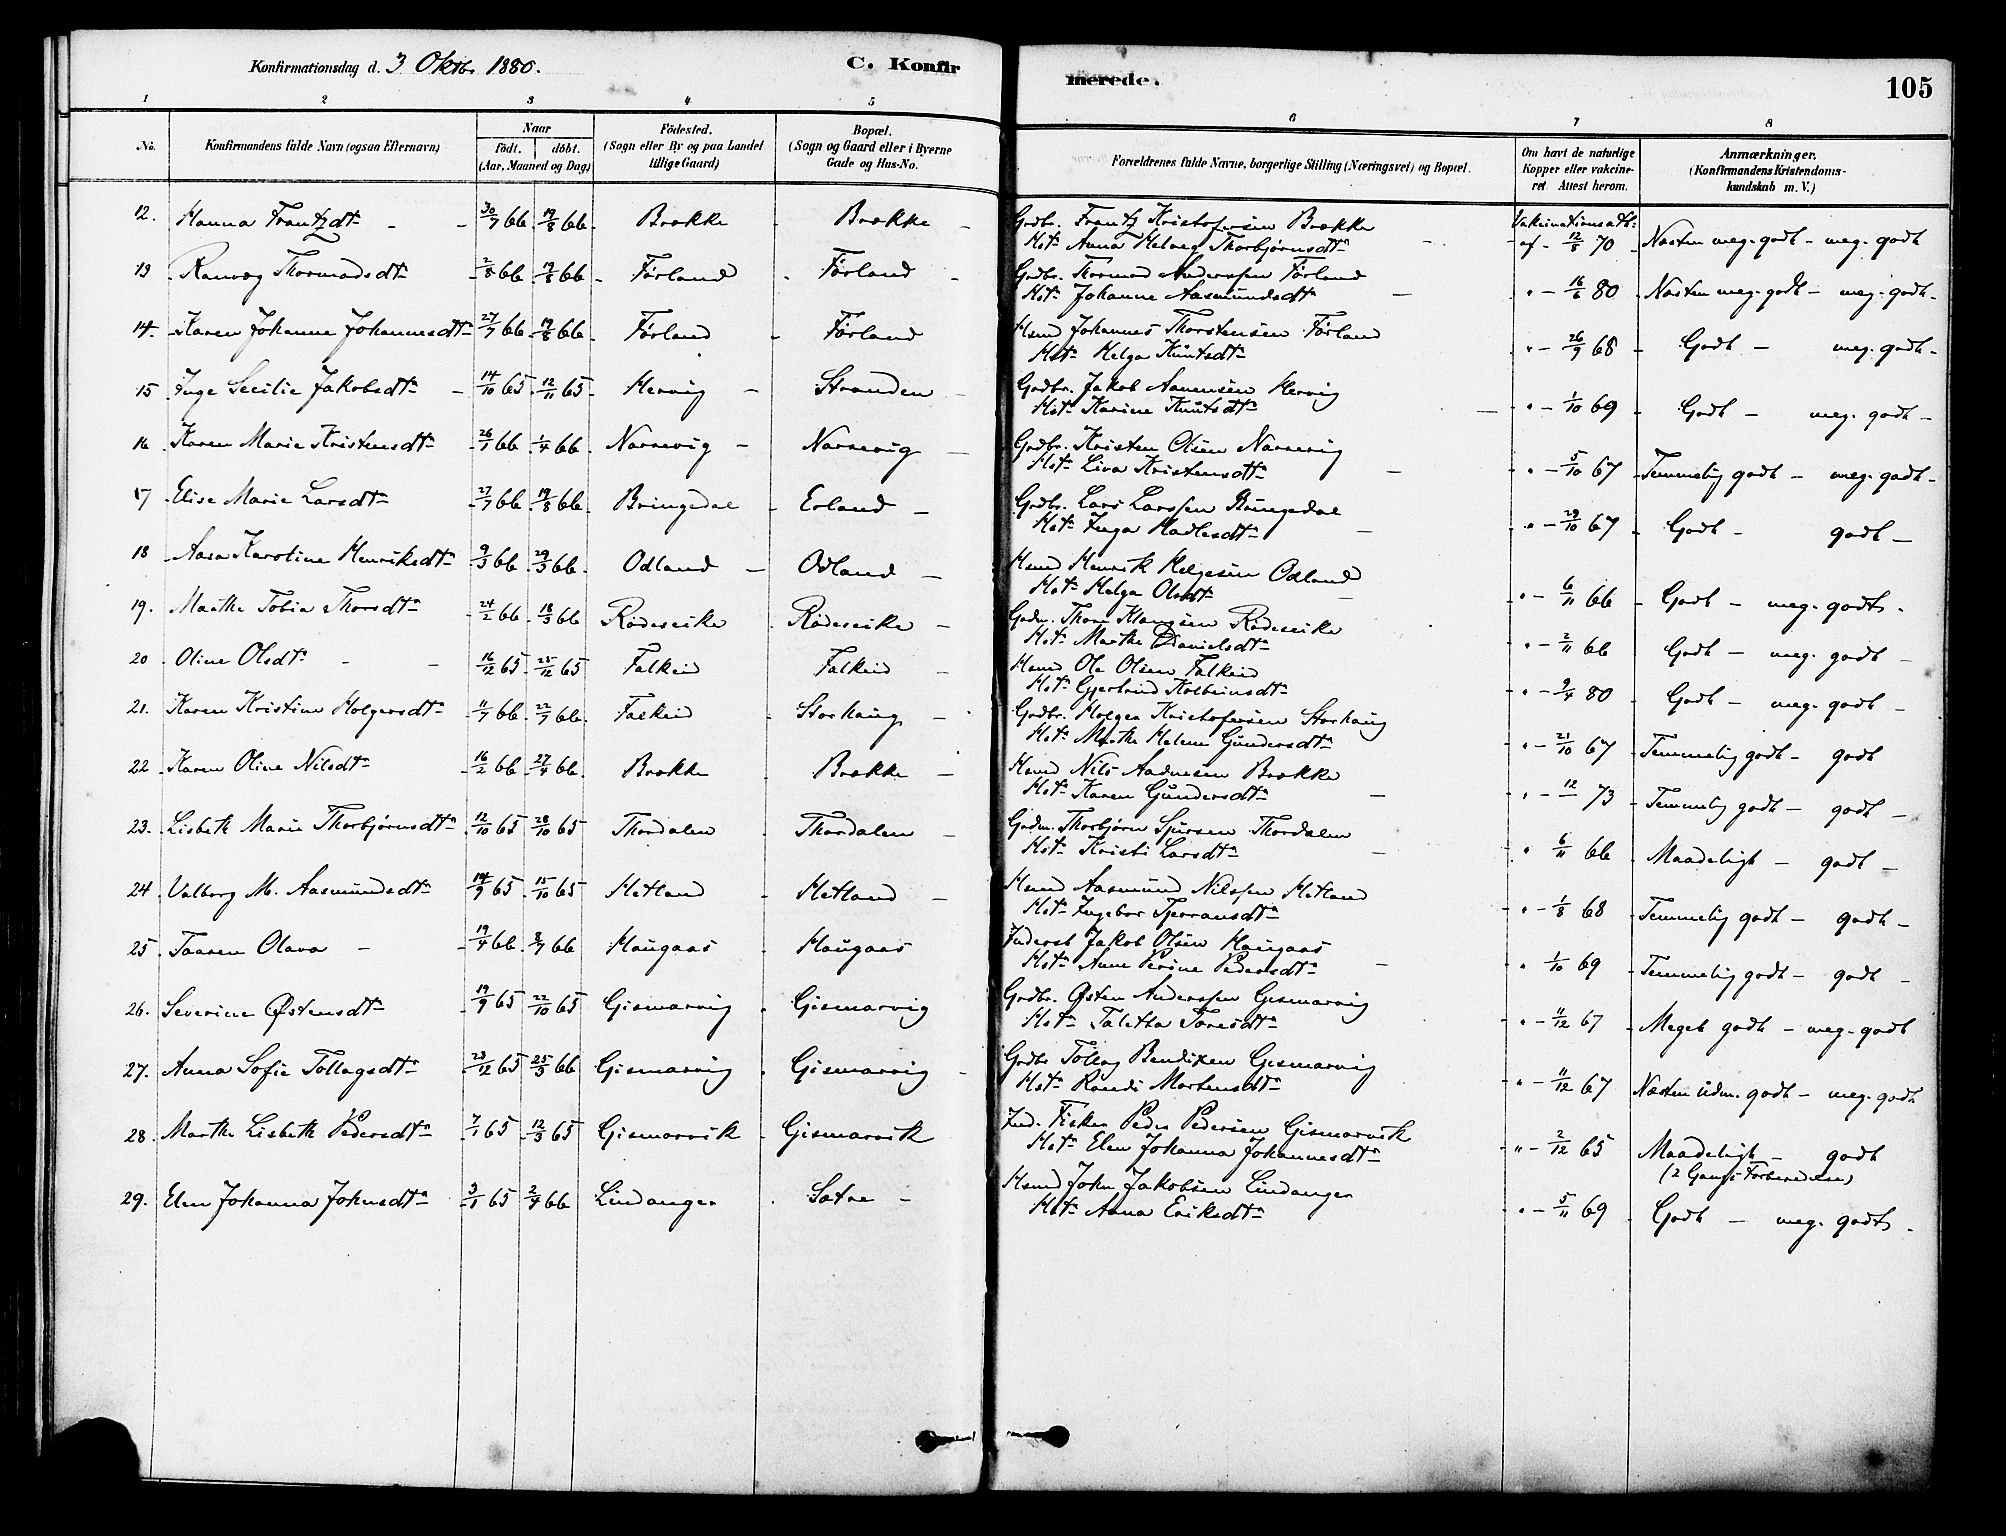 Konfirmationsdag d. 3 Oktbr. 1880.
C. Konfirmerede.
105
1 2 3 4 5 6 7 8
No. Konfirmandens fulde Navn (ogsaa Efternavn) Naar født. døbt. (Aar, Maaned og Dag) Fødested. (Sogn eller By og paa Landet tillige Gaard) Bopæl. (Sogn og Gaard eller i Byerne Gade og Hus-No. Forældrenes fulde Navne, borgerlige Stilling (Næringsvei) og Bopæl. Om havt de naturlige Kopper eller vakcineret. Attest herom. Anmærkninger. (Konfirmandens Kristendomskundskab m. V.)
12. Hanna Frantzdtr - - 30/7 66 19/8 66 Brække Brække Grdbr. Frantz Kristofersen Brække Vakcinationsatt:
Hst. Anna Helveg Thorbjørnsdtr af - 12/8 70 Næsten meg. godt - meg. godt
13 Ranveg Thormodsdtr 2/8 66 19/8 66 Førland Førland Grdbr. Thormod Anderssen Førland
Hst. Johanne Aasmundsdtr " - 16/6 80 Næsten meg. godt - meg. godt
14. Karen Johanne Johannesdtr 27/7 66 19/8 66 Førland Førland Hsmd Johannes Thorstensen Førland
Hst. Helga Knutsdtr " - 26/9 68 Godt - meg. godt
15 Inge Secilie Jakobsdtr 14/10 65 12/11 65 Hervig Stranden Grdbr. Jakob Aanensen Hervig
Hst. Karine Knutsdtr " - 1/10 69 Godt - meg. godt
16 Karen Marie Kristensdtr 26/1 66 1/4 66 Narrevig Narrevig Grdbr. Kristen Olsen Narrevig
Hst. Liva Kristensdtr " - 5/10 67 Temmelig godt - meg. godt
17 Elise Marie Larsdtr 27/7 66 19/8 66 Bringedal Erland Grdbr. Lars Larssen Bringedal
Hst. Inga Hadlesdtr " - 29/10 67 Godt - godt
18 Aasa Karoline Henriksdtr 9/3 66 29/3 66 Odland Odland Hsmd Henrik Helgesen Odland
Hst. Helga Olsdtr " - 6/11 66 Godt - meg. godt
19. Marthe Tobia Thorsdtr 24/2 66 18/3 66 Rødeseike Rødeseike Thor Rødeseike
Hst. Marthe Danielsdtr " - 2/11 66 Godt - meg. godt
20 Oline Olsdtr - - 16/12 65 25/12 65 Falkeid Falkeid Hsmd Ole Olsen Falkeid
Hst. Gjertrud Kolbeinsdtr " - 9/4 80 Godt - meg. godt
21. Karen Kristine Holgersdtr 11/7 66 22/7 66 Falkeid Storhaug Grdbr. Holger Kristofersen Storhaug
Hst. Marthe Helene Gundersdtr " - 21/10 67 Temmelig godt - godt
22 Karen Oline Nilsdtr 16/2 66 27/4 66 Brække Brække Hsmd Nils Aadnesen Brække
Hst. Karen Gundersdtr " - 12/ 73 Temmelig godt - godt
23. Lisbeth Marie Thorbjørnsdtr 12/10 65 28/10 65 Thordalen Thordalen Thorbjørn Sjursen Thordalen
Hst. Kristi Larsdtr " 6/11 66 Maadeligt - godt
24 Valborg M. Aasmundsdtr 14/9 65 15/10 65 Hetland Hetland Hsmd Aasmund Nilssen Hetland
Hst. Ingebor Tjerransdtr " - 1/8 68 Temmelig godt - godt
25 Taaren Olava - 19/4 66 8/7 66 Haugaas Haugaas Inderst Jakob Olsen Haugaas
Hst. Anne Perine Pedersdtr " 1/10 69 Temmelig godt - godt
26. Severine Østensdtr 19/9 65 22/10 65 Gismarvig Gismarvig Grdbr. Østen Anderssen Gismarvig
Hst. Taletta Toresdtr " - 11/12 67 Meget godt - meg. godt
27. Anna Sofie Tollagsdtr 23/12 65 25/3 66 Gismarvig Gismarvig Grdbr Tollag Bendixen Gismarvig
Hst. Randi Mortensdtr " - 11/12 67 Næsten udm. godt - meg. godt
28. Marthe Lisbeth Pedersdtr 7/1 65 12/3 65 Gismarvik Gismarvik Ind. Fisker Peder Pedersen Gismarvik
Hst. Elen Johanna Johannesdtr " - 2/12 65 Maadeligt - godt
(2 Gangs Forberedelse)
29. Elen Johanna Johnsdtr 3/1 65 2/4 66 Lindanger Satre - Hsmd John Jakobsen Lindanger
Hst. Anna Eriksdtr " - 5/11 69 Godt - meg. godt